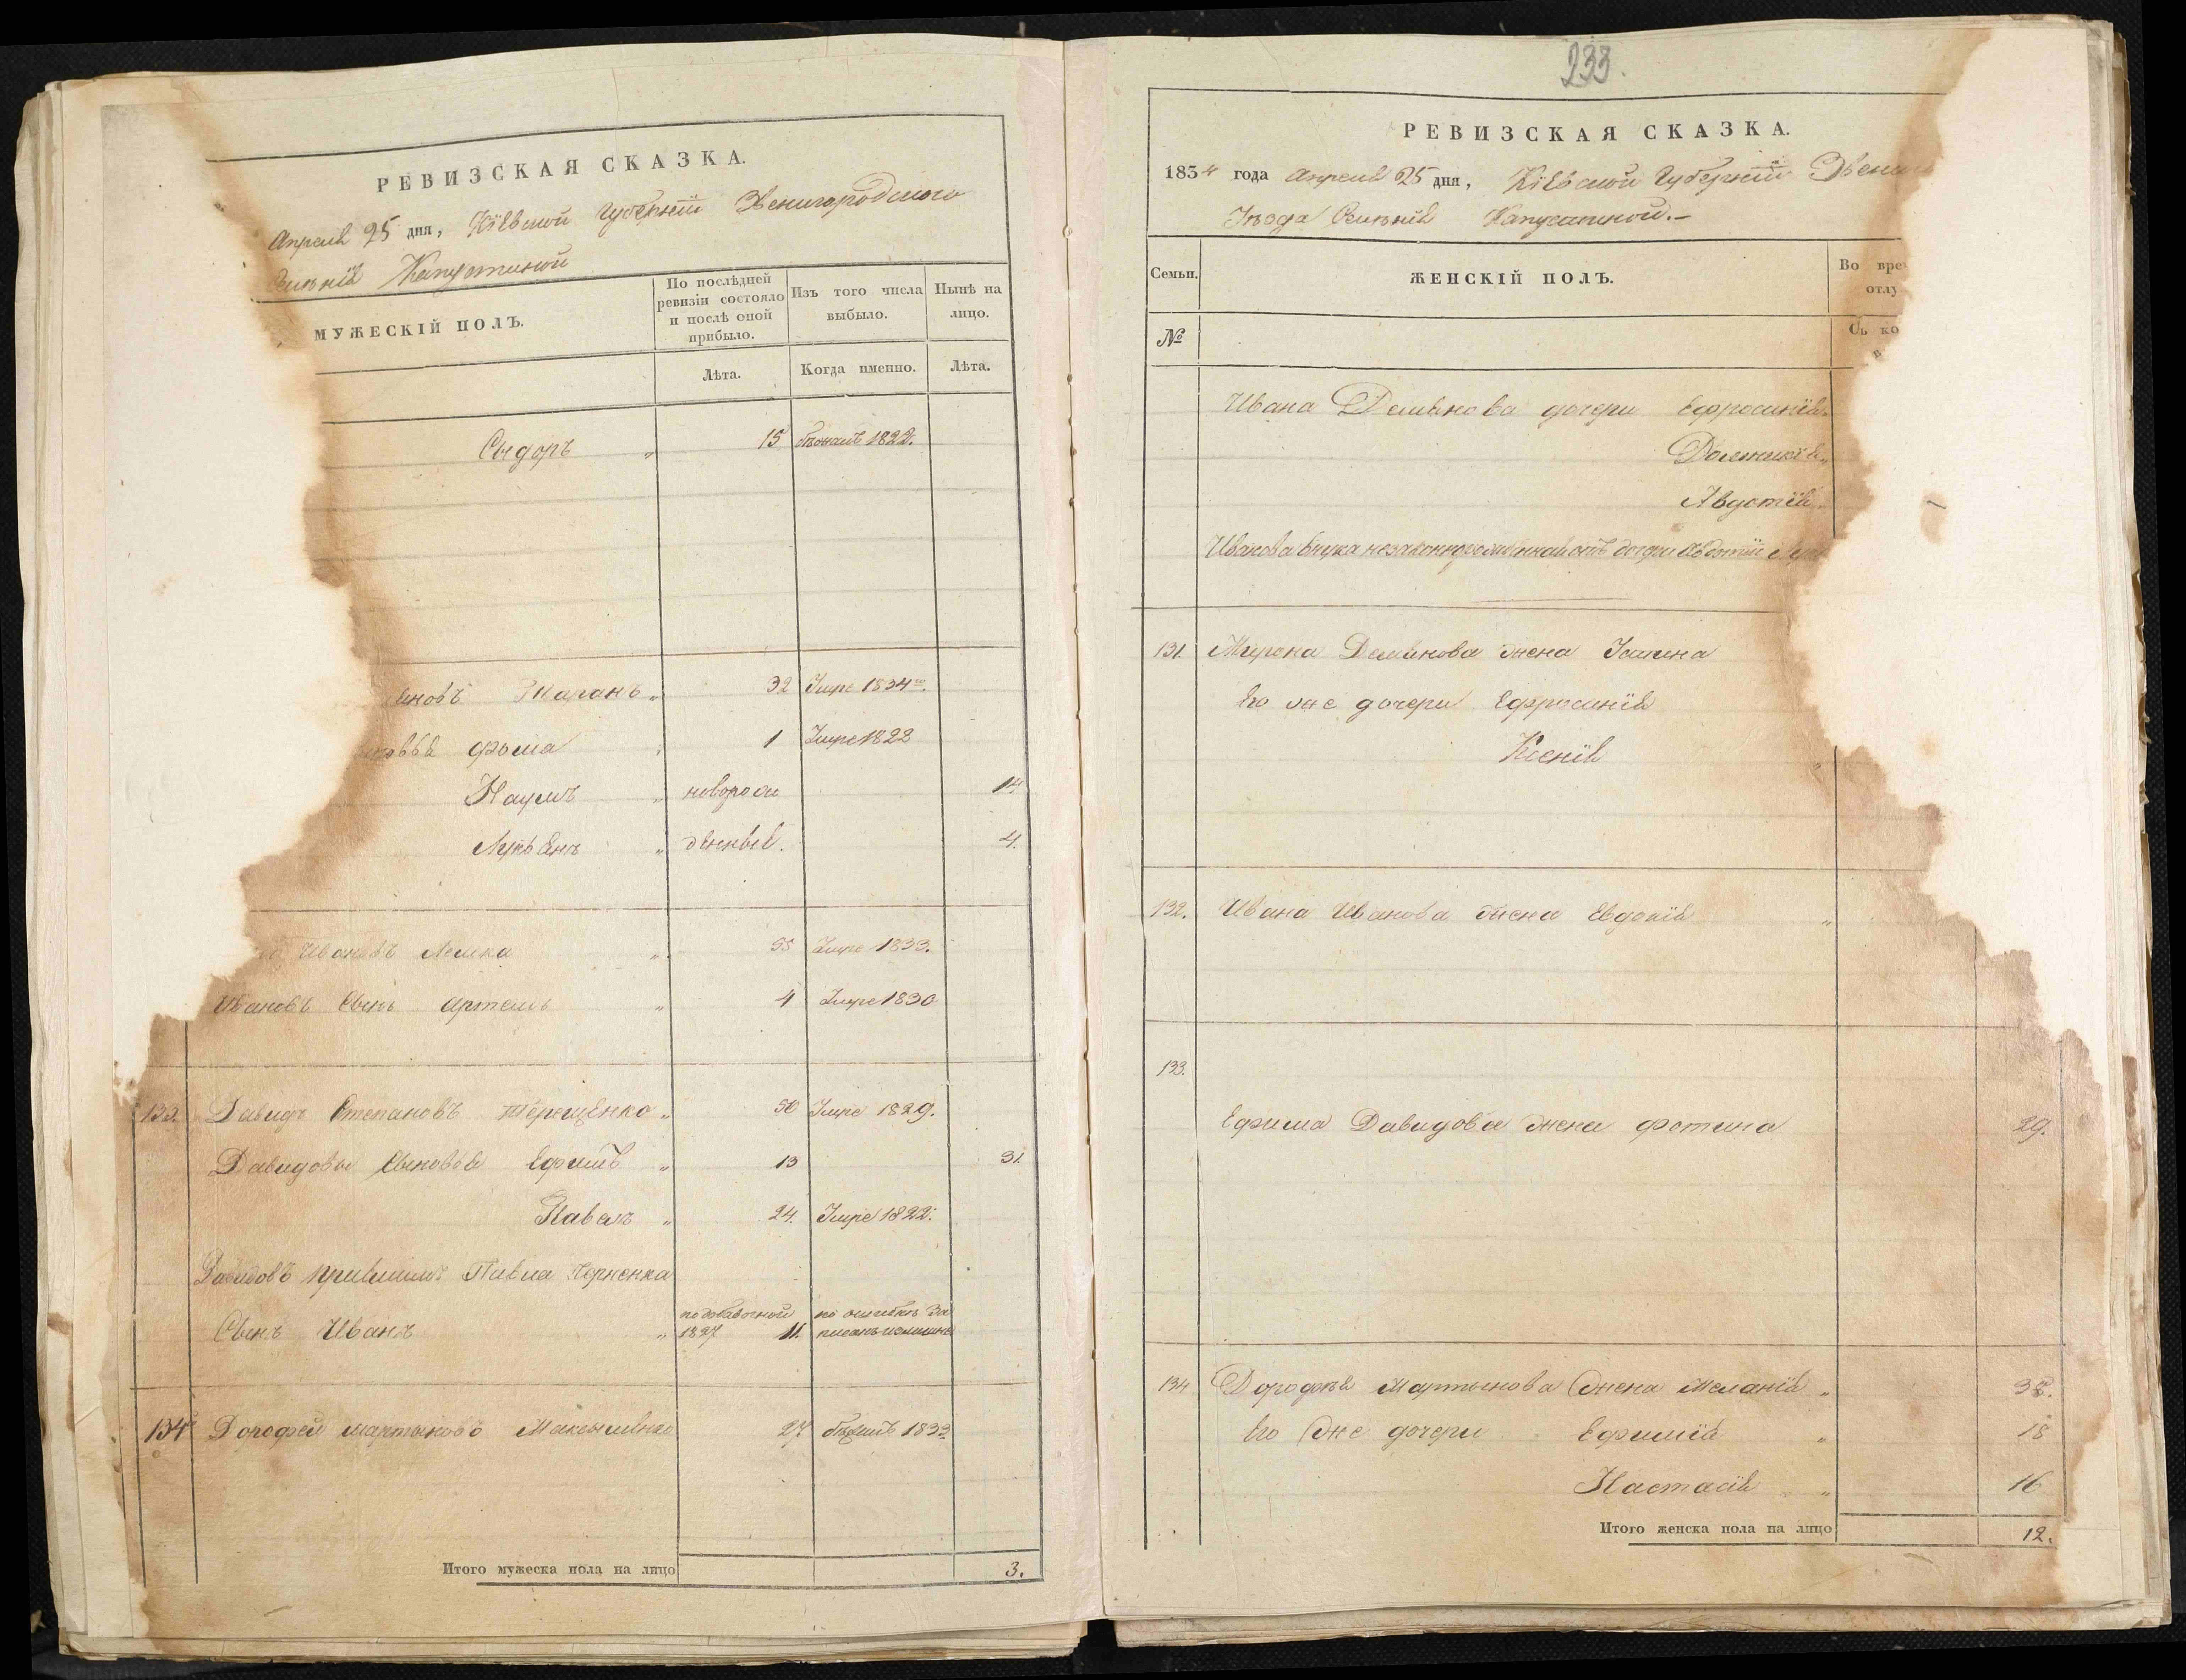 РЕВИЗСКАЯ СКАЗКА.
Апреля 25 дня, Кіевской Губерніи Звенигородского
Капустиной
МУЖЕСКІЙ ПОЛЪ.
По послѣдней ревизіи состояло и послѣ оной прибыло.
Изъ того числа выбыло.
Нынѣ на лицо.
Лѣта.
Когда именно.
Лѣта.
Сыдоръ " 15 1822.
Таранъ " 32 Умре 1834го.
Фома 1 Умре 1822
Наумъ " новорож 14.
Лукьянъ " денные. 4.
Ивановъ Лешка " 55 Умре 1833.
Ивановъ Сынъ Артемъ " 4 Умре 1830
133. Давидъ Степановъ Терещенко " 50 Умре 1829.
Давидовы Сыновья Ефимъ " 13 31.
Павелъ " 24. Умре 1822.
Давидовъ Павла Черненка
Сынъ Иванъ " по добавочной 1827 11. по ошибке записанъ излишне
134 Дорофей Мартыновъ 27 бѣжалъ 1833
Итого мужеска пола на лицо 3.
233.
РЕВИЗСКАЯ СКАЗКА.
1834 года Апреля 25 дня, Кіевской Губерніи
Уѣзда Капустиной.
Семьи.
ЖЕНСКІЙ ПОЛЪ.
№
Ивана Демьянова дочери Ефросинія
Домникія
Ивана внука незаконнорожденная отъ дочери
131. Мирона Демьянова жена Иоанна
Его же дочери Ефросинія
Ксенія
132. Ивана Иванова жена Евдокія "
133.
Ефима Давидова жена Фотина 29.
134 Дорофея Мартынова жена Меланія "
Его же дочери Ефимія " 18
Настасія " 16
Итого женска пола на лицо 12.